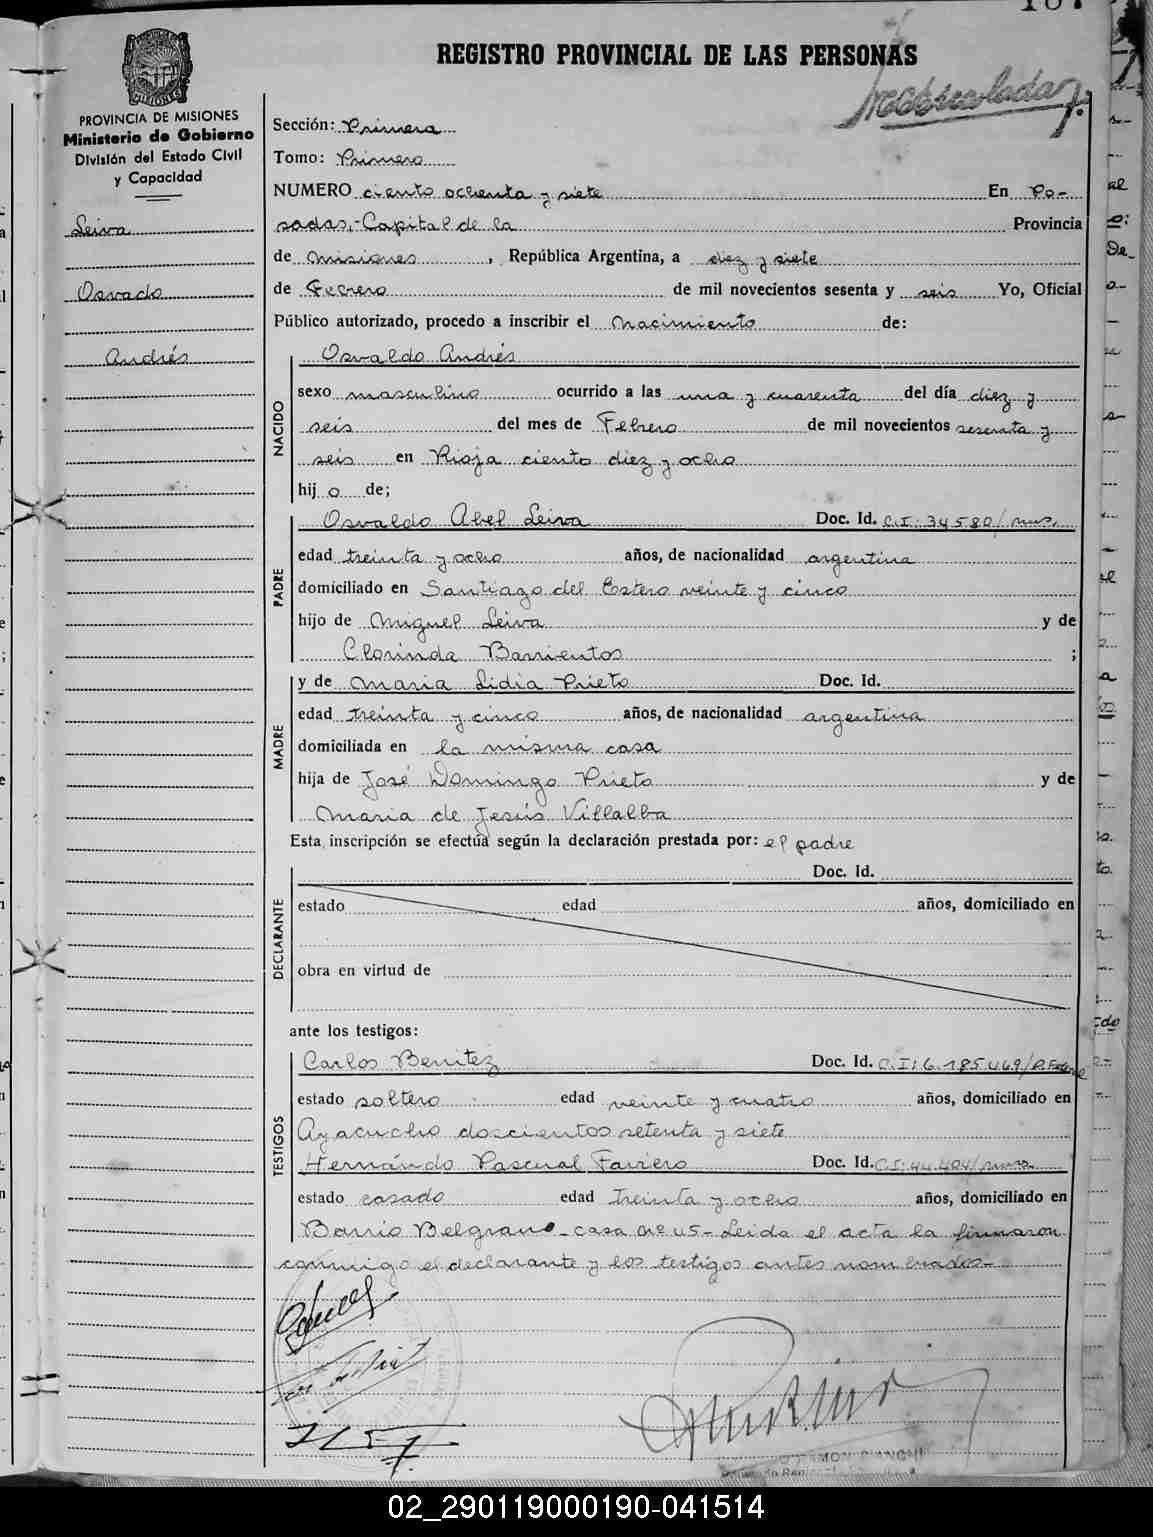 187
REGISTRO PROVINCIAL DE LAS PERSONAS
PROVINCIA DE MISIONES
Ministerio de Gobierno
División del Estado Civil
y Capacidad
Leiva
Osvado
Andrés
Sección: Primera
Tomo: Primero
NUMERO ciento ochenta y siete En Po-
sadas,-Capital de la Provincia
de Misiones, República Argentina, a diez y siete
de Fecrero de mil novecientos sesenta y seis Yo, Oficial
Público autorizado, procedo a inscribir el nacimiento de:
NACIDO
Osvaldo Andrés
sexo masculino ocurrido a las una y cuarenta del día diez y
seis del mes de Febrero de mil novecientos sesenta y
seis en Rioja ciento diez y ocho
hijo de;
PADRE
Osvaldo Abel Leiva Doc. Id. C.I: 34580/mns.
edad treinta y ocho años, de nacionalidad argentina
domiciliado en Santiago del Estero veinte y cinco
hijo de Miguel Leiva y de
Clorinda Barrientos ;
MADRE
y de Maria Lidia Prieto Doc. Id.
edad treinta y cinco años, de nacionalidad argentina
domiciliada en la misma casa
hija de José Domingo Prieto y de
Maria de Jesús Villalba
Esta inscripción se efectúa según la declaración prestada por: el padre
DECLARANTE
Doc. Id.
estado edad años, domiciliado en
obra en virtud de
ante los testigos:
TESTIGOS
Carlos Benitez Doc. Id. C.I: 6.185.469/P.Federal
estado soltero edad veinte y cuatro años, domiciliado en
Ayacucho doscientos setenta y siete
Hernándo Pascual Doc. Id. C.I: 44.404/mns.
estado casado edad treinta y ocho años, domiciliado en
Barrio Belgrano - casa Nº 45 - Leida el acta la firmaron
conmigo el declarante y los testigos antes nombrados-
02_290119000190-041514